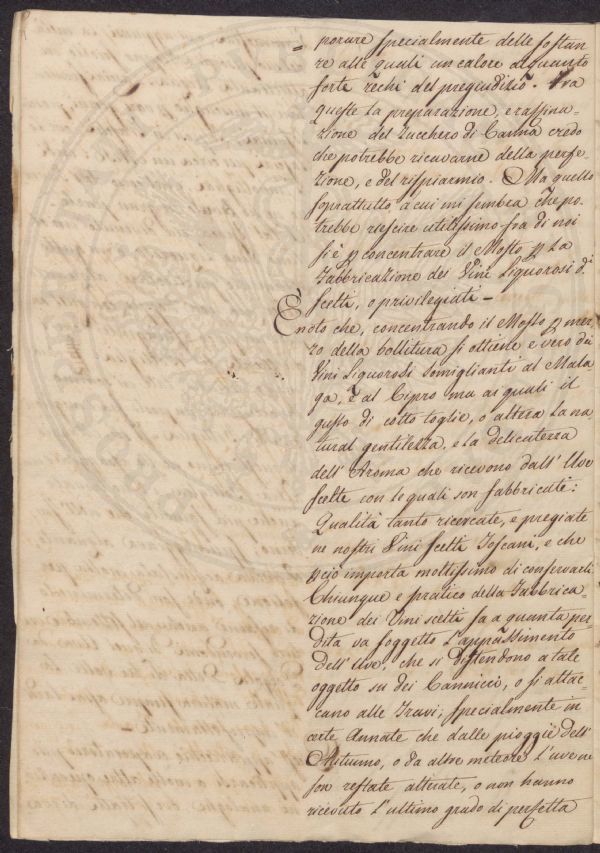 = porare specialmente delle sostan
ze alle quali un calore alquanto
forte rechi del pregiudizio. Fra
queste la preparazione, e raffina=
zione del Zucchero di Canna credo
che potrebbe ricavarne della perfe=
zione, e del risparmio. Ma quello
soprattutto a cui mi sembra che po
trebbe riescire utilissimo fra di noi
si è p concentrare il Mosto p La
Fabbricazione dei Vini Liquorosi di
Scelti, o privilegiati _
È noto che, concentrando il Mosto p mez
zo della bollitura si ottiene è vero dei
Vini Liquorosi somiglianti al Mala
ga, e al Cipro ma ai quali il
gusto di cotto toglie, o altera La na
tural gentilezza, e La delicatezza
dell' Aroma che ricevono dall' Uve
scelte con le quali son fabbricati:
Qualità tanto ricercate, e pregiate
ne nostri Vini Scelti Toscani, e che
pciò importa moltissimo di conservarli
Chiunque è pratico della Fabbrica=
zione dei Vini scelti sa a quanta per
dita va soggetto L'appassimento
dell' Uve, che si distendono a tale
oggetto su dei Cannicci, o si attac
cano alle Travi; Specialmente in
certe Annate che dalle pioggie dell'
Autunno, o da altre meteore L'uve ne
son restate, o non hanno
ricevuto L'ultimo grado di perfetta